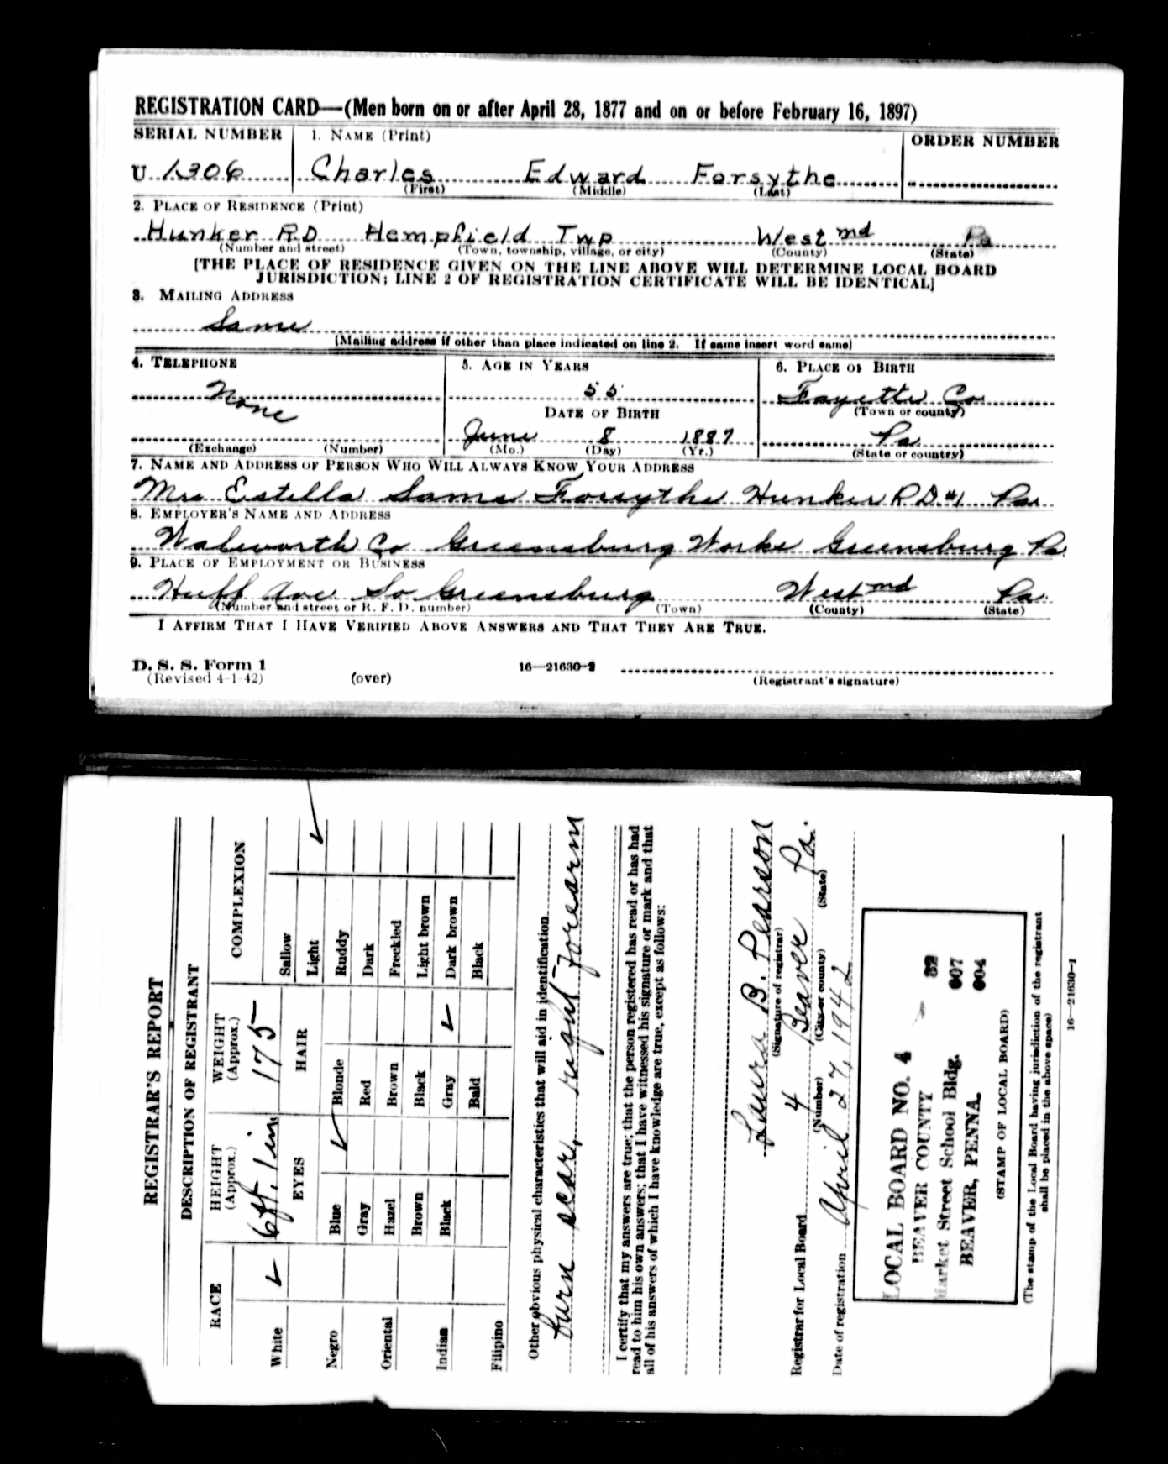 REGISTRATION CARD—(Men born on or after April 28, 1877 and on or before February 16, 1897)
SERIAL NUMBER 1. NAME (Print) ORDER NUMBER
U 1306 Charles Edward Forsythe
(First) (Middle) (Last)
2. PLACE OF RESIDENCE (Print)
Hunker R.D. Hempfield Twp West md Pa
(Number and street) (Town, township, village, or city) (County) (State)
[THE PLACE OF RESIDENCE GIVEN ON THE LINE ABOVE WILL DETERMINE LOCAL BOARD
JURISDICTION; LINE 2 OF REGISTRATION CERTIFICATE WILL BE IDENTICAL]
3. MAILING ADDRESS
Same
[Mailing address if other than place indicated on line 2. If same insert word same]
4. TELEPHONE 5. AGE IN YEARS 6. PLACE OF BIRTH
None 55 Fayette Co
DATE OF BIRTH (Town or county)
June 8 1887 Pa
(Exchange) (Number) (Mo.) (Day) (Yr.) (State or country)
7. NAME AND ADDRESS OF PERSON WHO WILL ALWAYS KNOW YOUR ADDRESS
Mrs Estella Sams Forsythe Hunker R.D.#1 Pa
8. EMPLOYER'S NAME AND ADDRESS
Walworth Co Greensburg Works Greensburg Pa
9. PLACE OF EMPLOYMENT OR BUSINESS
Huff Ave So Greensburg West md Pa
(Number and street or R. F. D. number) (Town) (County) (State)
I AFFIRM THAT I HAVE VERIFIED ABOVE ANSWERS AND THAT THEY ARE TRUE.
D. S. S. Form 1
(Revised 4-1-42) (over) 16—21630-2
(Registrant's signature)
REGISTRAR'S REPORT
DESCRIPTION OF REGISTRANT
RACE HEIGHT WEIGHT COMPLEXION
(Approx.) (Approx.)
6ft. 1 in 175
White ✓ EYES HAIR Sallow
Light ✓
Negro Blue ✓ Blonde Ruddy
Gray Red Dark
Oriental Hazel Brown Freckled
Brown Black Light brown
Indian Black Gray ✓ Dark brown
Bald Black
Filipino
Other obvious physical characteristics that will aid in identification
burn scar, right forearm
I certify that my answers are true; that the person registered has read or has had
read to him his own answers; that I have witnessed his signature or mark and that
all of his answers of which I have knowledge are true, except as follows:
Laura B. Pearson
(Signature of registrar)
Registrar for Local Board 4 Beaver Pa.
(Number) (City or county) (State)
Date of registration April 27, 1942
LOCAL BOARD NO. 4 32
BEAVER COUNTY 007
Market Street School Bldg. 004
BEAVER, PENNA.
(STAMP OF LOCAL BOARD)
(The stamp of the Local Board having jurisdiction of the registrant
shall be placed in the above space)
16—21630-1